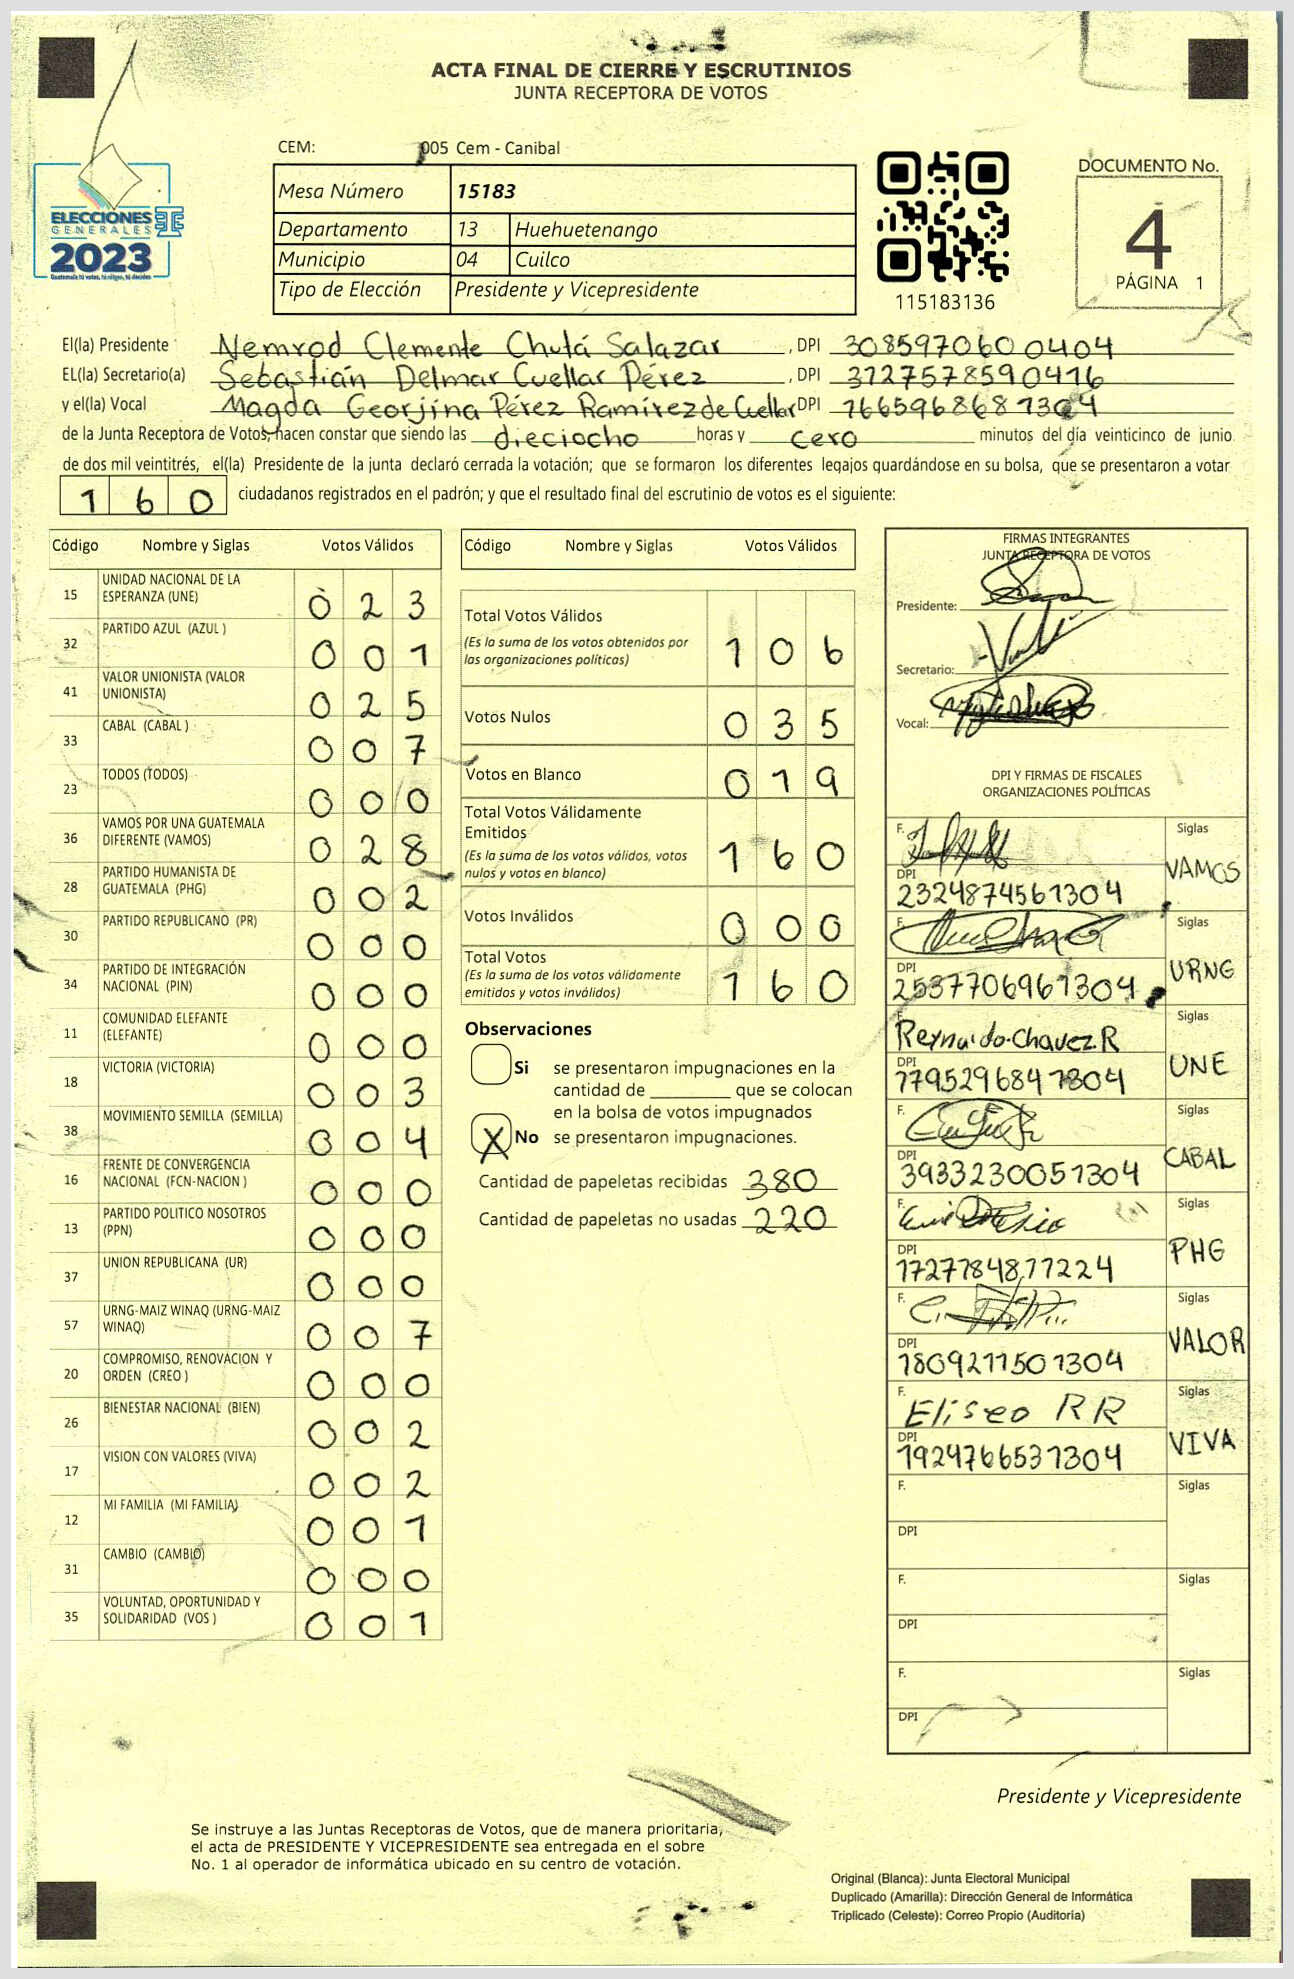 ACTA FINAL DE CIERRE Y ESCRUTINIOS
JUNTA RECEPTORA DE VOTOS
CEM: 005 Cem - Canibal
Mesa Número 15183
Departamento 13 Huehuetenango
Municipio 04 Cuilco
Tipo de Elección Presidente y Vicepresidente
ELECCIONES
GENERALES
2023
Guatemala tú votas, tú eliges, tú decides
115183136
DOCUMENTO No.
4
PÁGINA 1
El(la) Presidente Nemrod Clemente Chutá Salazar , DPI 3085970600404
EL(la) Secretario(a) Sebastián Delmar Cuellar Pérez , DPI 3727578590416
y el(la) Vocal Magda Georjina Pérez Ramírez de Cuellar DPI 1665968681304
de la Junta Receptora de Votos, hacen constar que siendo las dieciocho horas y cero minutos del día veinticinco de junio
de dos mil veintitrés, el(la) Presidente de la junta declaró cerrada la votación; que se formaron los diferentes legajos guardándose en su bolsa, que se presentaron a votar
160 ciudadanos registrados en el padrón; y que el resultado final del escrutinio de votos es el siguiente:
Código Nombre y Siglas Votos Válidos
15 UNIDAD NACIONAL DE LA ESPERANZA (UNE) 023
32 PARTIDO AZUL (AZUL ) 001
41 VALOR UNIONISTA (VALOR UNIONISTA) 025
33 CABAL (CABAL ) 007
23 TODOS (TODOS) 000
36 VAMOS POR UNA GUATEMALA DIFERENTE (VAMOS) 028
28 PARTIDO HUMANISTA DE GUATEMALA (PHG) 002
30 PARTIDO REPUBLICANO (PR) 000
34 PARTIDO DE INTEGRACIÓN NACIONAL (PIN) 000
11 COMUNIDAD ELEFANTE (ELEFANTE) 000
18 VICTORIA (VICTORIA) 003
38 MOVIMIENTO SEMILLA (SEMILLA) 004
16 FRENTE DE CONVERGENCIA NACIONAL (FCN-NACION ) 000
13 PARTIDO POLITICO NOSOTROS (PPN) 000
37 UNION REPUBLICANA (UR) 000
57 URNG-MAIZ WINAQ (URNG-MAIZ WINAQ) 007
20 COMPROMISO, RENOVACION Y ORDEN (CREO ) 000
26 BIENESTAR NACIONAL (BIEN) 002
17 VISION CON VALORES (VIVA) 002
12 MI FAMILIA (MI FAMILIA) 001
31 CAMBIO (CAMBIO) 000
35 VOLUNTAD, OPORTUNIDAD Y SOLIDARIDAD (VOS ) 001
Código Nombre y Siglas Votos Válidos
Total Votos Válidos 106
(Es la suma de los votos obtenidos por
las organizaciones políticas)
Votos Nulos 035
Votos en Blanco 019
Total Votos Válidamente
Emitidos 160
(Es la suma de los votos válidos, votos
nulos y votos en blanco)
Votos Inválidos 000
Total Votos 160
(Es la suma de los votos válidamente
emitidos y votos inválidos)
Observaciones
Si se presentaron impugnaciones en la
cantidad de ________ que se colocan
en la bolsa de votos impugnados
X No se presentaron impugnaciones.
Cantidad de papeletas recibidas 380
Cantidad de papeletas no usadas 220
FIRMAS INTEGRANTES
JUNTA RECEPTORA DE VOTOS
Presidente:
Secretario:
Vocal:
DPI Y FIRMAS DE FISCALES
ORGANIZACIONES POLÍTICAS
F. Siglas VAMOS
DPI 2324874561304
F. Siglas URNG
DPI 2537706961304
F. Reynaldo Chavez R Siglas UNE
DPI 1795296841304
F. Siglas CABAL
DPI 3933230051304
F. Siglas PHG
DPI 1727784871224
F. Siglas VALOR
DPI 1809211501304
F. Eliseo RR Siglas VIVA
DPI 1924766531304
F. Siglas
DPI
F. Siglas
DPI
F. Siglas
DPI
Presidente y Vicepresidente
Se instruye a las Juntas Receptoras de Votos, que de manera prioritaria,
el acta de PRESIDENTE Y VICEPRESIDENTE sea entregada en el sobre
No. 1 al operador de informática ubicado en su centro de votación.
Original (Blanca): Junta Electoral Municipal
Duplicado (Amarilla): Dirección General de Informática
Triplicado (Celeste): Correo Propio (Auditoría)